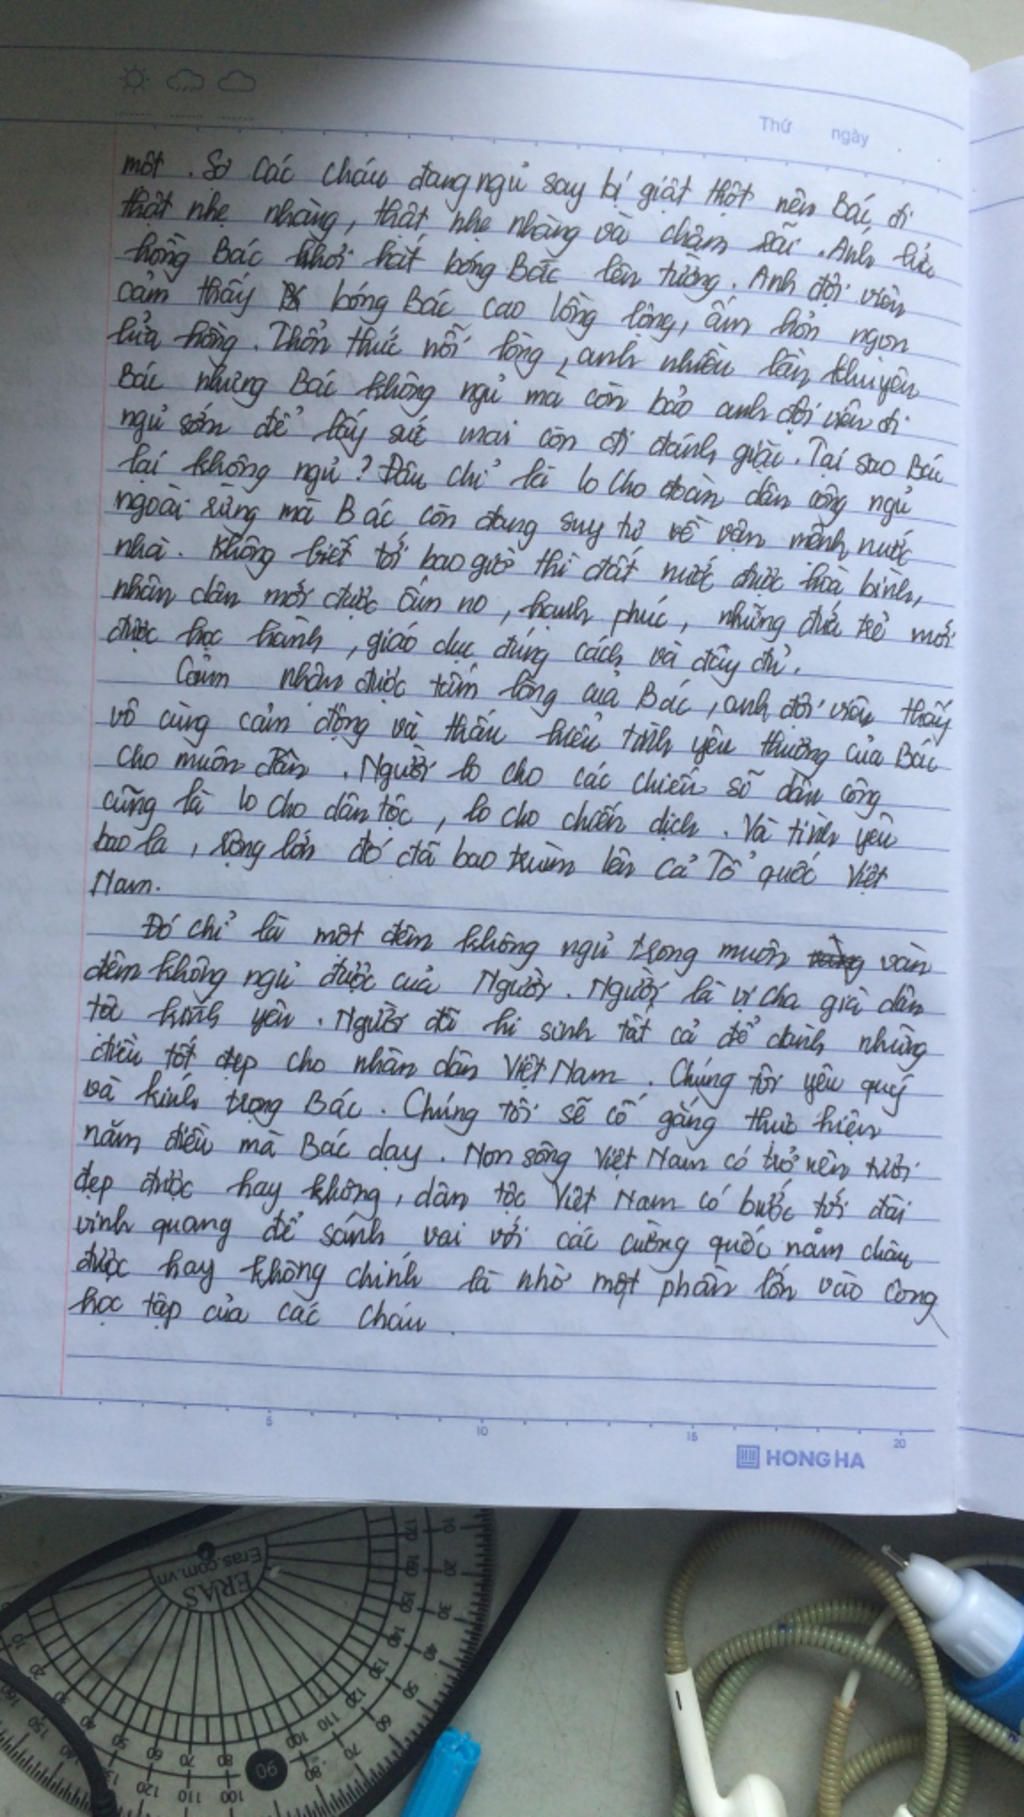 Thứ ngày
một. Sợ các cháu đang ngủ say bị giật thột nên Bác đi
thật nhẹ nhàng, thật nhẹ nhàng và chậm rãi. Anh lửa
hồng Bác khơi hắt bóng Bác lên tường. Anh đội viên
cảm thấy bóng Bác cao lồng lộng, ấm hơn ngọn
lửa hồng. Thổn thức nỗi lòng, anh nhiều lần khuyên
Bác nhưng Bác không ngủ mà còn bảo anh đội viên đi
ngủ sớm để lấy sức mai còn đi đánh giặc. Tại sao Bác
lại không ngủ? Đâu chỉ là lo cho đoàn dân công ngủ
ngoài rừng mà Bác còn đang suy tư về vận mệnh nước
nhà. Không biết tới bao giờ thì đất nước được hoà bình,
nhân dân mới được ấm no, hạnh phúc, những đứa trẻ mới
được học hành, giáo dục đúng cách và đầy đủ.
Cảm nhận được tấm lòng của Bác, anh đội viên thấy
vô cùng cảm động và thấu hiểu tình yêu thương của Bác
cho muôn dân. Người lo cho các chiến sĩ dân công
cũng là lo cho dân tộc, lo cho chiến dịch. Và tình yêu
bao la, rộng lớn đó đã bao trùm lên cả Tổ quốc Việt
Nam.
Đó chỉ là một đêm không ngủ trong muôn vàn
đêm không ngủ được của Người. Người là vị cha già dân
tộc kính yêu. Người đã hi sinh tất cả để dành những
điều tốt đẹp cho nhân dân Việt Nam. Chúng tôi yêu quý
và kính trọng Bác. Chúng tôi sẽ cố gắng thực hiện
năm điều mà Bác dạy. Non sông Việt Nam có trở nên tươi
đẹp được hay không, dân tộc Việt Nam có bước tới đài
vinh quang để sánh vai với các cường quốc năm châu
được hay không chính là nhờ một phần lớn vào công
học tập của các cháu.
5 10 15 20
HONG HA
ERAS
Eras.com.vn